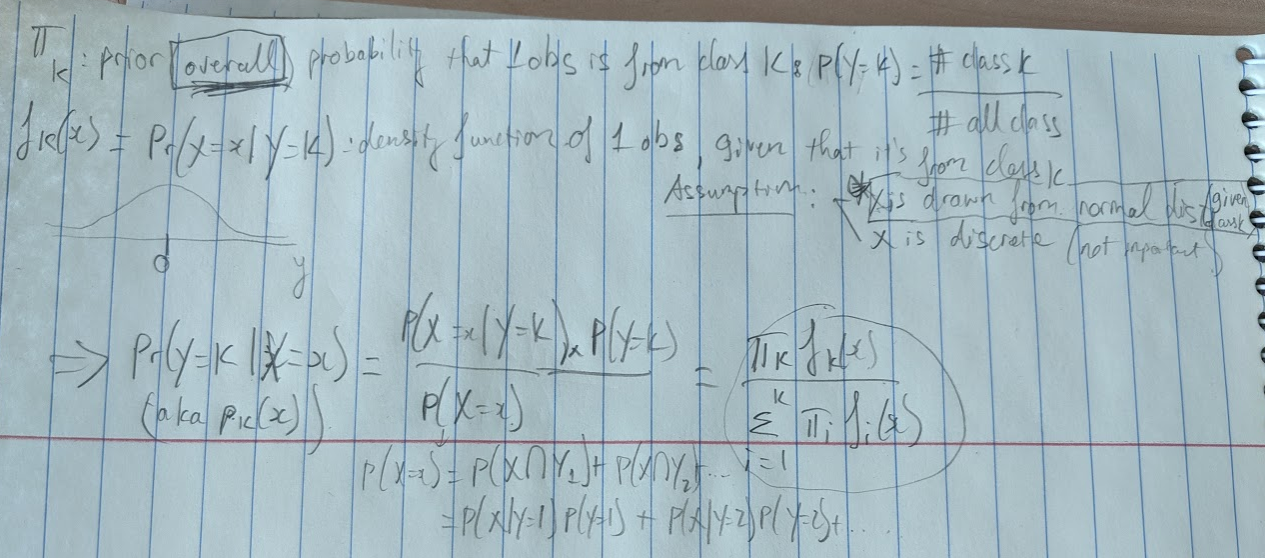 π_k : prior overall probability that 1 obs is from class K : P(Y=k) = # class k / # all class
f_k(x) = Pr(X=x | Y=K) : density function of 1 obs, given that it's from class K
Assumption : * X is drawn from normal dist (given class k)
x is discrete (not important)
0 y
⇒ Pr(Y=K | X=x) = P(X=x | Y=K) x P(Y=k) / P(X=x) = π_k f_k(x) / Σ^k_{i=1} π_i f_i(x)
(aka p_k(x))
P(X=x) = P(X∩Y_1) + P(X∩Y_2) + ...
= P(X|Y=1) P(Y=1) + P(X|Y=2) P(Y=2) + ...